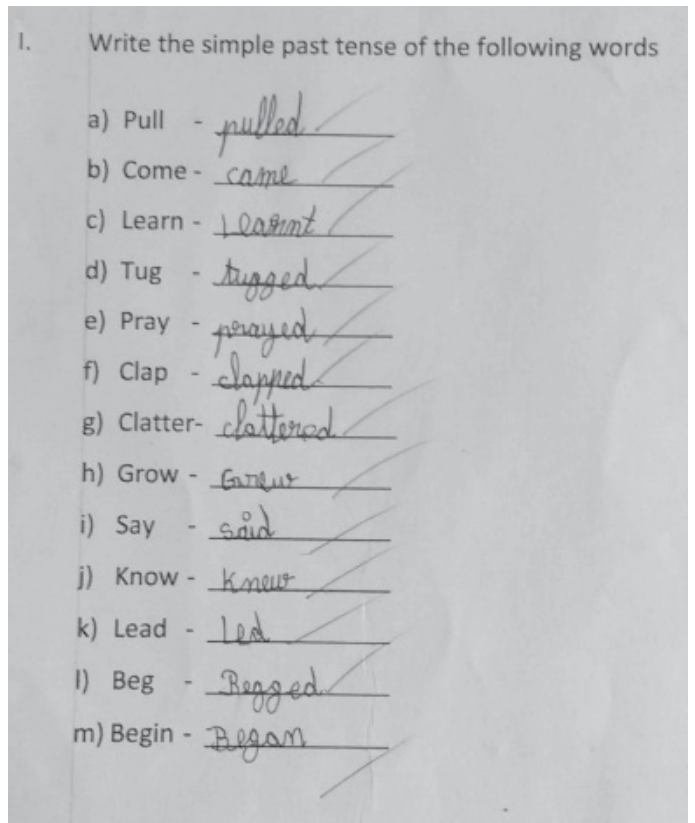 I. Write the simple past tense of the following words
a) Pull - pulled
b) Come - came
c) Learn - Learnt
d) Tug - tugged
e) Pray - prayed
f) Clap - clapped
g) Clatter- clattered
h) Grow - Grew
i) Say - said
j) Know - Knew
k) Lead - Led
l) Beg - Begged
m) Begin - Began